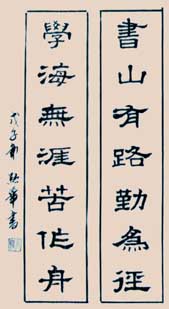 書山有路勤為徑
學海無涯苦作舟
戊子書